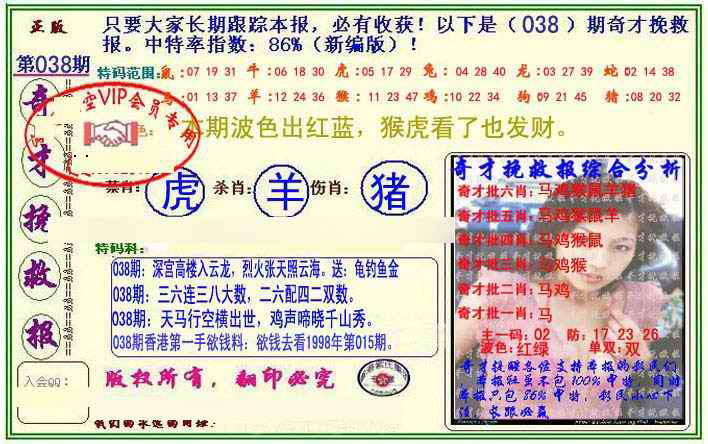 正版
只要大家长期跟踪本报，必有收获！以下是（038）期奇才挽救
报。中特率指数：86%（新编版）！
第038期
奇才挽救报
特码范围：鼠：07 19 31 牛：06 18 30 虎：05 17 29 兔：04 28 40 龙：03 27 39 蛇：02 14 38
马：01 13 37 羊：12 24 36 猴：11 23 47 鸡：10 22 34 狗：09 21 45 猪：08 20 32
空VIP会员专用
本期波色出红蓝，猴虎看了也发财。
禁肖：虎 杀肖：羊 伤肖：猪
特码科：
038期：深宫高楼入云龙，烈火张天照云海。送：龟钓鱼金
038期：三六连三八大数，二六配四二双数。
038期：天马行空横出世，鸡声啼晓千山秀。
038期香港第一手欲钱料：欲钱去看1998年第015期。
版权所有，翻印必究
入会QQ：
奇才挽救报综合分析
奇才批六肖：马鸡猴鼠羊猪
奇才批五肖：马鸡猴鼠羊
奇才批四肖：马鸡猴鼠
奇才批三肖：马鸡猴
奇才批二肖：马鸡
奇才批一肖：马
主一码：02 防：17 23 26
波色：红绿 单双：双
奇才提醒各位支持本报的彩民们
本报社虽不包100%中特，同时
本报只包86%中特，彩民小心下
注，长跟必赢